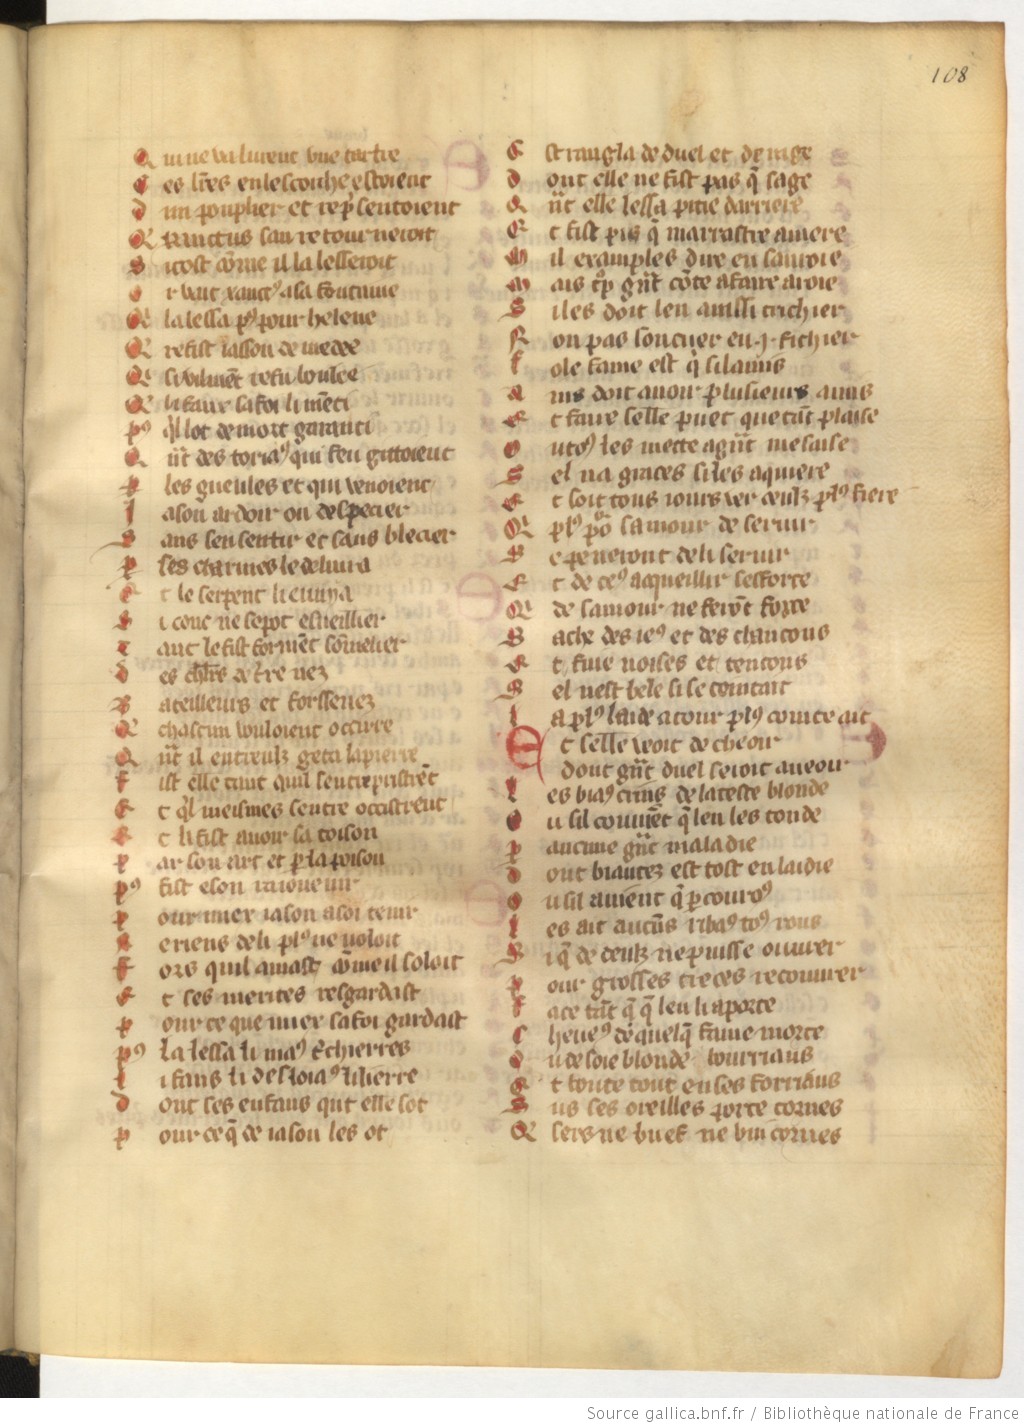 108
Qui ne valurent une tartre
Ces lres en lescorche estoient
dun pouplier et rep̃sentoient
Q̃ xanctus san retourneroit
Si tost cõme il la lesseroit
or vait xanct⁹ a sa fontaine
Q̃ la lessa p⁹ pour heleine
Q̃ refist iason de medee
Q̃ si vilmẽt refu boulee
Q̃ li faus sa foi li mẽti
p⁹ q̃l lot de mort garanti
Qñt des toriax qui feu gittoient
p les gueules et qui venoient
Iason ardoir ou despecier
Sans feu sentir et sans blecier
p ses charmes le delivra
Et le serpent li enivra
Si conc ne se pot esveillier
Tant le fist formẽt sõmeillier
des chlrs de tr̃e nez
Bateilleurs et forssenez
Q̃ chascun vouloient occirre
Qñt il entreulz geta la pierre
Fist elle tant quil sentrepristrẽt
Et q̃l meismes sentre occistrent
Et li fist avoir sa toison
par son art et p la poison
p⁹ fist eson raiovenir
pour mier iason a soi tenir
Ne riens de li pl⁹ ne voloit
Fors quil amast cõme il soloit
Et ses merites resgardast
pour ce que mier sa foi gardast
p⁹ la lessa li ma⁹ trichierres
Li faus li desloia⁹ li lierre
dont ses enfans qñt elle sot
pour ce q̃ de iason les ot
Estrangla de duel et de rage
dont elle ne fist pas q̃ sage
Qñt elle lessa pitie darriere
Et fist pis q̃ marrastre amere
Mil examples dire en sauroie
Mais trop gñt cõte a faire aroie
Si les doit len aussi trichier
Non pas soucier en .i. fichier
Fole fame est q̃ si la mis
Ains doit avoir plusieurs amis
Et faire selle puet que tãt plaise
Que to⁹ les mette a gñt mesaise
Sel na graces si les aquiere
Et soit tous iours vers ceulz pl⁹ fiere
Q̃ pl⁹ por samour deservir
Se peneront de li servir
Et de ce⁹ acqueillir sefforce
Q̃ de samour ne ferõt force
Sache des ie⁹ et des chancons
Et fuie noises et tencons
Sel nest bele si se cointait
La pl⁹ laide atour pl⁹ cointe ait
Et selle veoit decheoir
dont gñt duel seroit a veoir
Les bia⁹ crins de la teste blonde
Ou sil couviẽt q̃ len les tonde
p aucune gñt maladie
dont biautez est tost enlaidie
Ou sil avient q̃ p courro⁹
Les ait aucũs riba⁹ to⁹ rous
Si q̃ de ceulz ne puisse ouvrer
pour grosses treces recouvrer
Face tãt q̃ q̃ len li aporte
Cheve⁹ de quelq̃ fame morte
Ou de soie blonde bourriaus
Et boute tout en ses forriaus
Sus ses oreilles porte cornes
Q̃ sers ne buef ne vnicornes
Source gallica.bnf.fr / Bibliothèque nationale de France